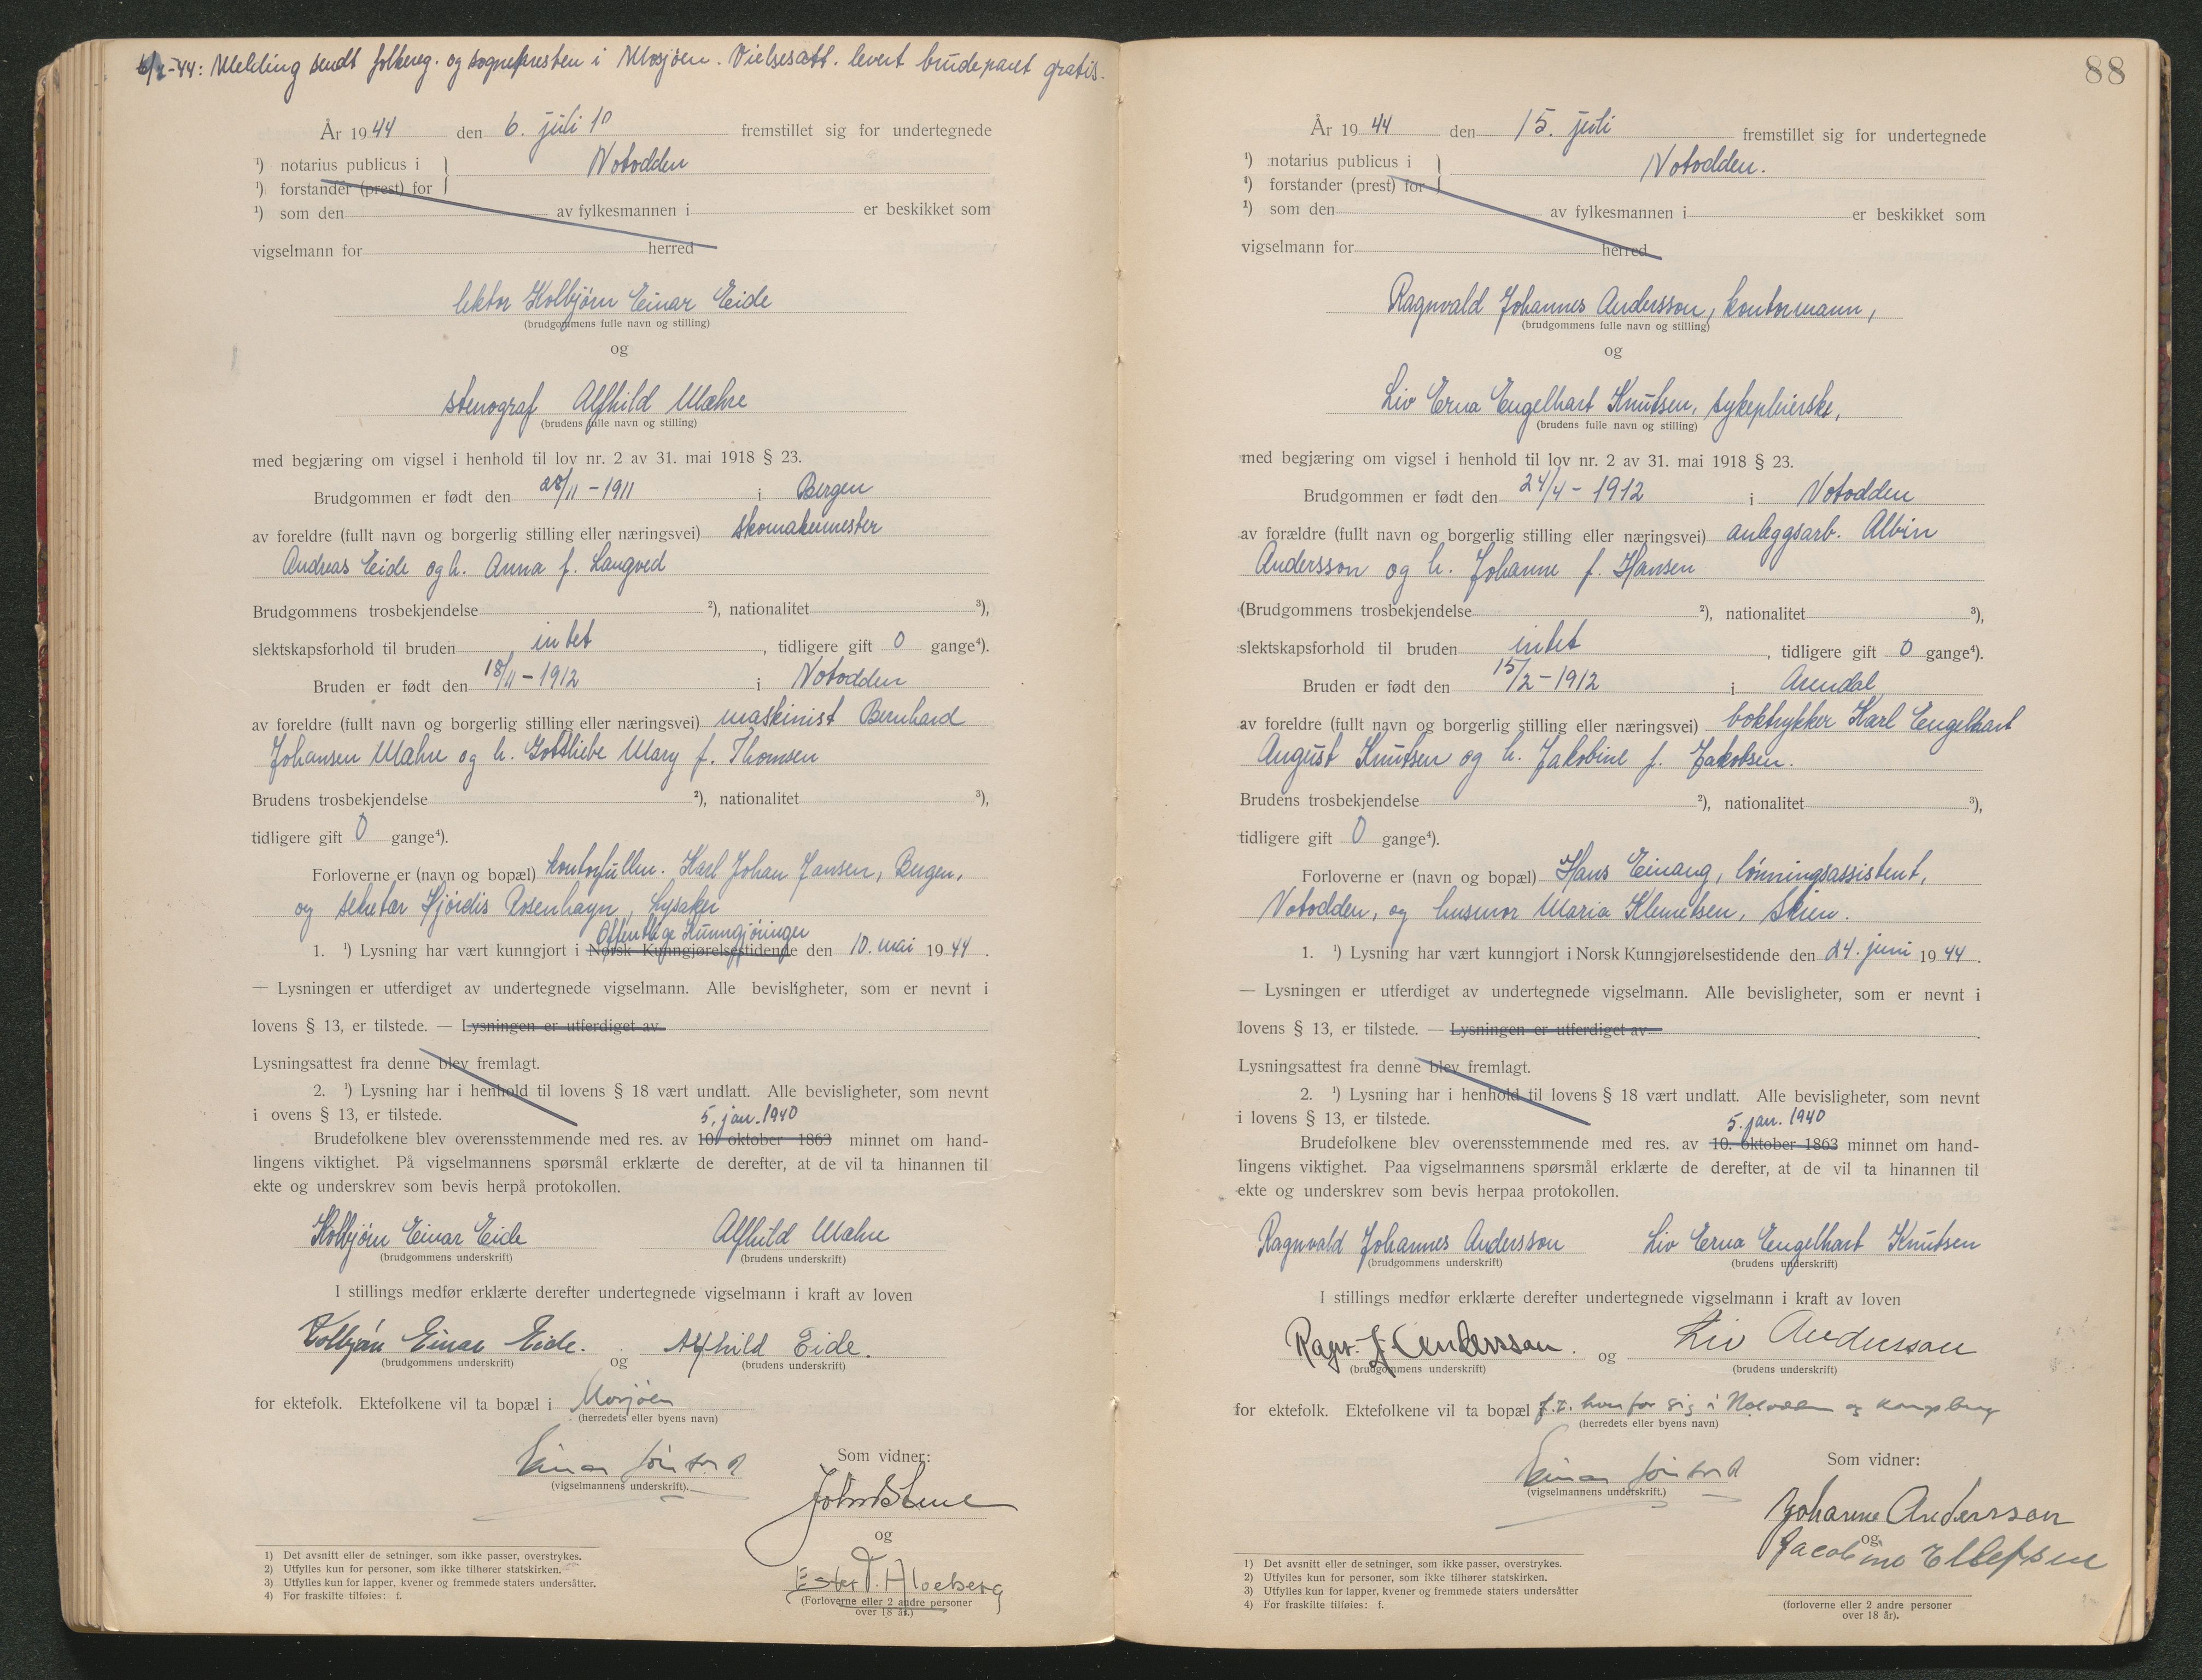 6/7-44: Melding sendt folkereg. og sognepresten i Mosjøen. Vielsesatt. levert brudeparet gratis.
År 1944 den 6. juli 10 fremstillet sig for undertegnede
¹) notarius publicus i Notodden
¹) forstander (prest) for
¹) som den av fylkesmannen i er beskikket som
vigselmann for herred
lektor Kolbjørn Einar Eide
(brudgommens fulle navn og stilling)
og
stenograf Alfhild Mæhre
(brudens fulle navn og stilling)
med begjæring om vigsel i henhold til lov nr. 2 av 31. mai 1918 § 23.
Brudgommen er født den 28/11-1911 i Bergen
av foreldre (fullt navn og borgerlig stilling eller næringsvei) skomakermester
Andreas Eide og h. Anna f. Langved
Brudgommens trosbekjendelse ²), nationalitet ³),
slektskapsforhold til bruden intet, tidligere gift 0 gange⁴).
Bruden er født den 18/11-1912 i Notodden
av foreldre (fullt navn og borgerlig stilling eller næringsvei) maskinist Bernhard
Johansen Mæhre og h. Gottliebe Mary f. Thomsen
Brudens trosbekjendelse ²), nationalitet ³),
tidligere gift 0 gange⁴).
Forloverne er (navn og bopæl) kontorfullm. Karl Johan Jansen, Bergen,
og sekretær Hjørdis Rosenhayn, Lysaker
Offentlige Kunngjøringer
1. ¹) Lysning har vært kunngjort i Norsk Kunngjørelsestidende den 10. mai 1944.
— Lysningen er utferdiget av undertegnede vigselmann. Alle bevisligheter, som er nevnt i
lovens § 13, er tilstede. — Lysningen er utferdiget av
Lysningsattest fra denne blev fremlagt.
2. ¹) Lysning har i henhold til lovens § 18 vært undlatt. Alle bevisligheter, som nevnt
i ovens § 13, er tilstede.
5. jan. 1940
Brudefolkene blev overensstemmende med res. av 10. oktober 1863 minnet om hand-
lingens viktighet. På vigselmannens spørsmål erklærte de derefter, at de vil ta hinannen til
ekte og underskrev som bevis herpå protokollen.
Kolbjørn Einar Eide Alfhild Mæhre
(brudgommens underskrift) (brudens underskrift)
I stillings medfør erklærte derefter undertegnede vigselmann i kraft av loven
Kolbjørn Einar Eide. og Alfhild Eide.
(brudgommens underskrift) (brudens underskrift)
for ektefolk. Ektefolkene vil ta bopæl i Mosjøen
(herredets eller byens navn)
Einar
(vigselmannens underskrift).
Som vidner:
og
Ester
(Forloverne eller 2 andre personer
over 18 år.)
1) Det avsnitt eller de setninger, som ikke passer, overstrykes.
2) Utfylles kun for personer, som ikke tilhører statskirken.
3) Utfylles kun for lapper, kvener og fremmede staters undersåtter.
4) For fraskilte tilføies: f.
88
År 1944 den 15. juli fremstillet sig for undertegnede
¹) notarius publicus i Notodden.
¹) forstander (prest) for
¹) som den av fylkesmannen i er beskikket som
vigselmann for herred
Ragnvald Johannes Andersson, kontormann,
(brudgommens fulle navn og stilling)
og
Liv Erna Engelhart Knutsen, sykepleierske,
(brudens fulle navn og stilling)
med begjæring om vigsel i henhold til lov nr. 2 av 31. mai 1918 § 23.
Brudgommen er født den 24/4-1912 i Notodden
av forældre (fullt navn og borgerlig stilling eller næringsvei) anleggsarb. Albin
Andersson og h. Johanne f. Hansen
(Brudgommens trosbekjendelse ²), nationalitet ³),
slektskapsforhold til bruden intet, tidligere gift 0 gange⁴).
Bruden er født den 15/2-1912 i Arendal
av foreldre (fullt navn og borgerlig stilling eller næringsvei) boktrykker Karl Engelhart
August Knutsen og h. Jakobine f. Jakobsen.
Brudens trosbekjendelse ²), nationalitet ³),
tidligere gift 0 gange⁴).
Forloverne er (navn og bopæl) Hans Einang, lønningsassistent,
Notodden, og husmor Maria Klemetsen, Skien.
1. ¹) Lysning har vært kunngjort i Norsk Kunngjørelsestidende den 24. juni 1944.
— Lysningen er utferdiget av undertegnede vigselmann. Alle bevisligheter, som er nevnt i
lovens § 13, er tilstede. — Lysningen er utferdiget av
Lysningsattest fra denne blev fremlagt.
2. ¹) Lysning har i henhold til lovens § 18 vært undlatt. Alle bevisligheter, som nevnt
i lovens § 13, er tilstede.
5. jan. 1940
Brudefolkene blev overensstemmende med res. av 10. oktober 1863 minnet om hand-
lingens viktighet. Paa vigselmannens spørsmål erklærte de derefter, at de vil ta hinannen til
ekte og underskrev som bevis herpaa protokollen.
Ragnvald Johannes Andersson Liv Erna Engelhart Knutsen
(brudgommens underskrift) (brudens underskrift)
I stillings medfør erklærte derefter undertegnede vigselmann i kraft av loven
Ragnv. J. Andersson. og Liv Andersson
(brudgommens underskrift) (brudens underskrift)
for ektefolk. Ektefolkene vil ta bopæl f.t. hver for sig i Notodden og Kongsberg
(herredets eller byens navn)
Einar
(vigselmannens underskrift.)
Som vidner:
Johanne Andersson
og
Jacobine Ellefsen
(forloverne eller 2 andre personer
over 18 år).
1) Det avsnitt eller de setninger, som ikke passer, overstrykes.
2) Utfylles kun for personer, som ikke tilhører statskirken.
3) Utfylles kun for lapper, kvener og fremmede staters undersåtter
4) For fraskilte tilføies: f.